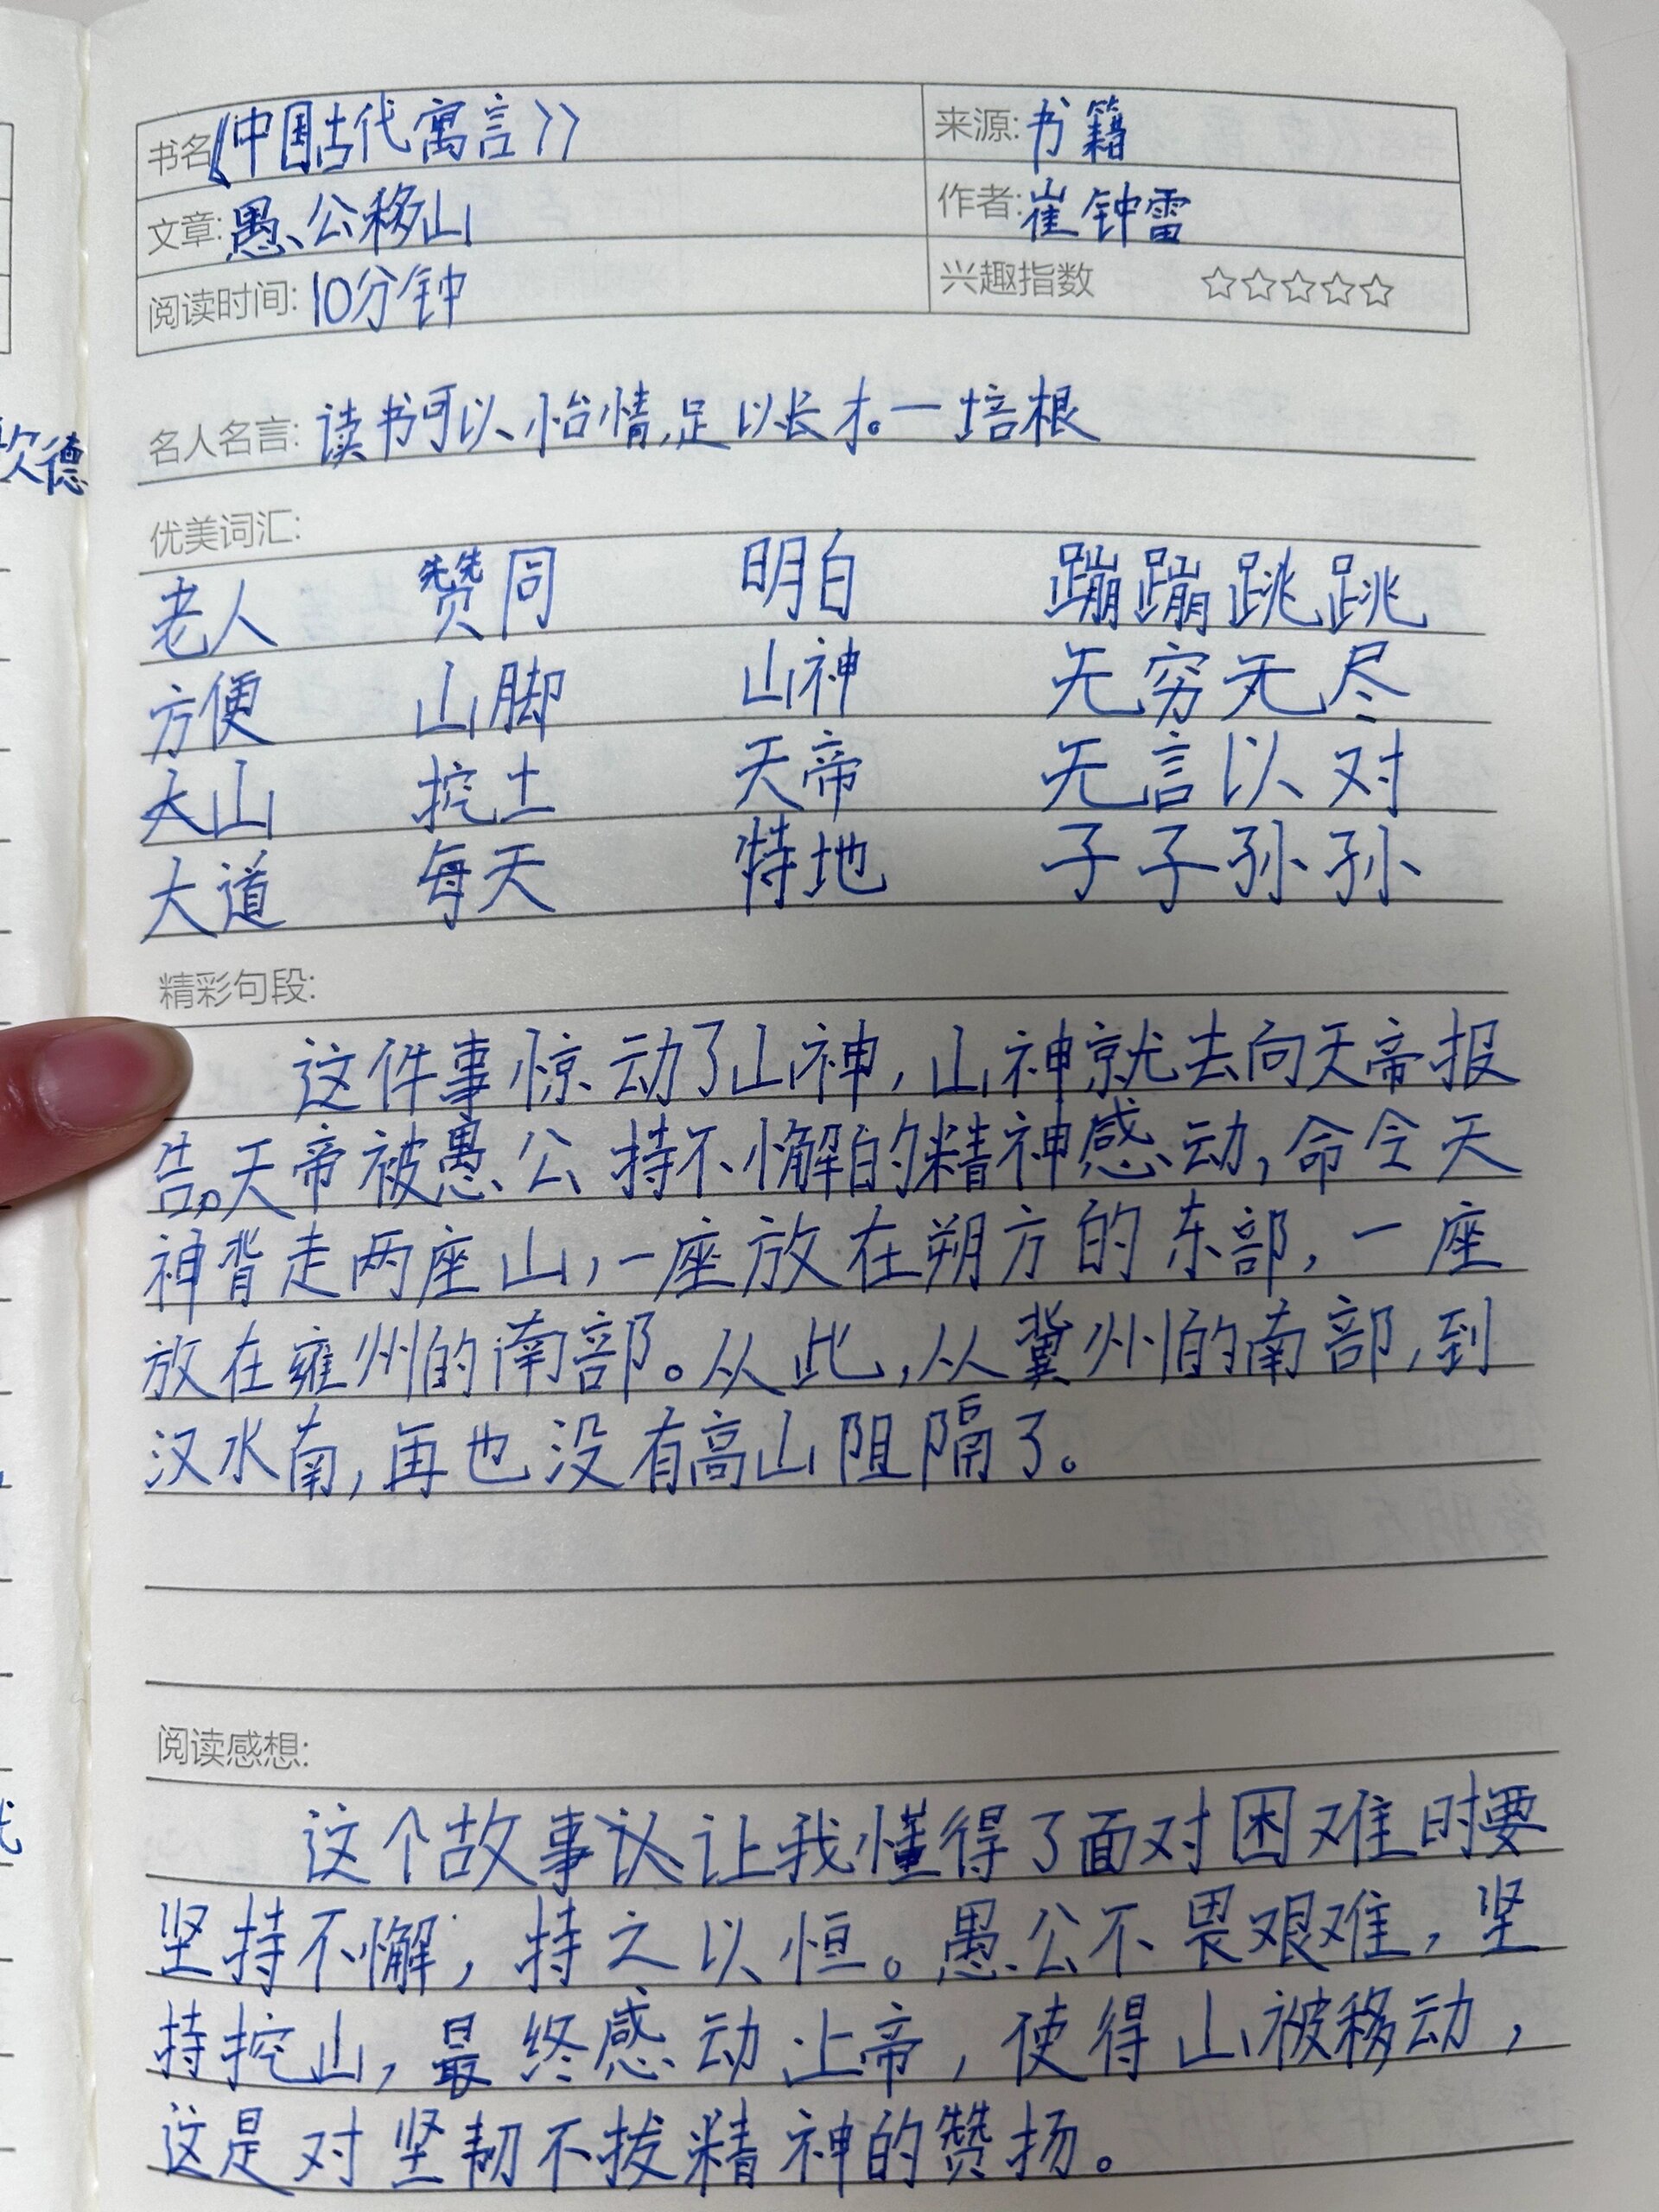 书名《中国古代寓言》 来源:书籍
文章:愚公移山 作者:崔钟雷
阅读时间:10分钟 兴趣指数 ☆☆☆☆☆
名人名言:读书可以怡情,足以长才。一培根
优美词汇:
老人 赞同 明白 蹦蹦跳跳
方便 山脚 山神 无穷无尽
大山 挖土 天帝 无言以对
大道 每天 特地 子子孙孙
精彩句段:
这件事惊动了山神,山神就去向天帝报
告。天帝被愚公持不懈的精神感动,命令天
神背走两座山,一座放在朔方的东部,一座
放在雍州的南部。从此,从冀州的南部,到
汉水南,再也没有高山阻隔了。
阅读感想:
这个故事让我懂得了面对困难时要
坚持不懈,持之以恒。愚公不畏艰难,坚
持挖山,最终感动上帝,使得山被移动,
这是对坚韧不拔精神的赞扬。
欣德